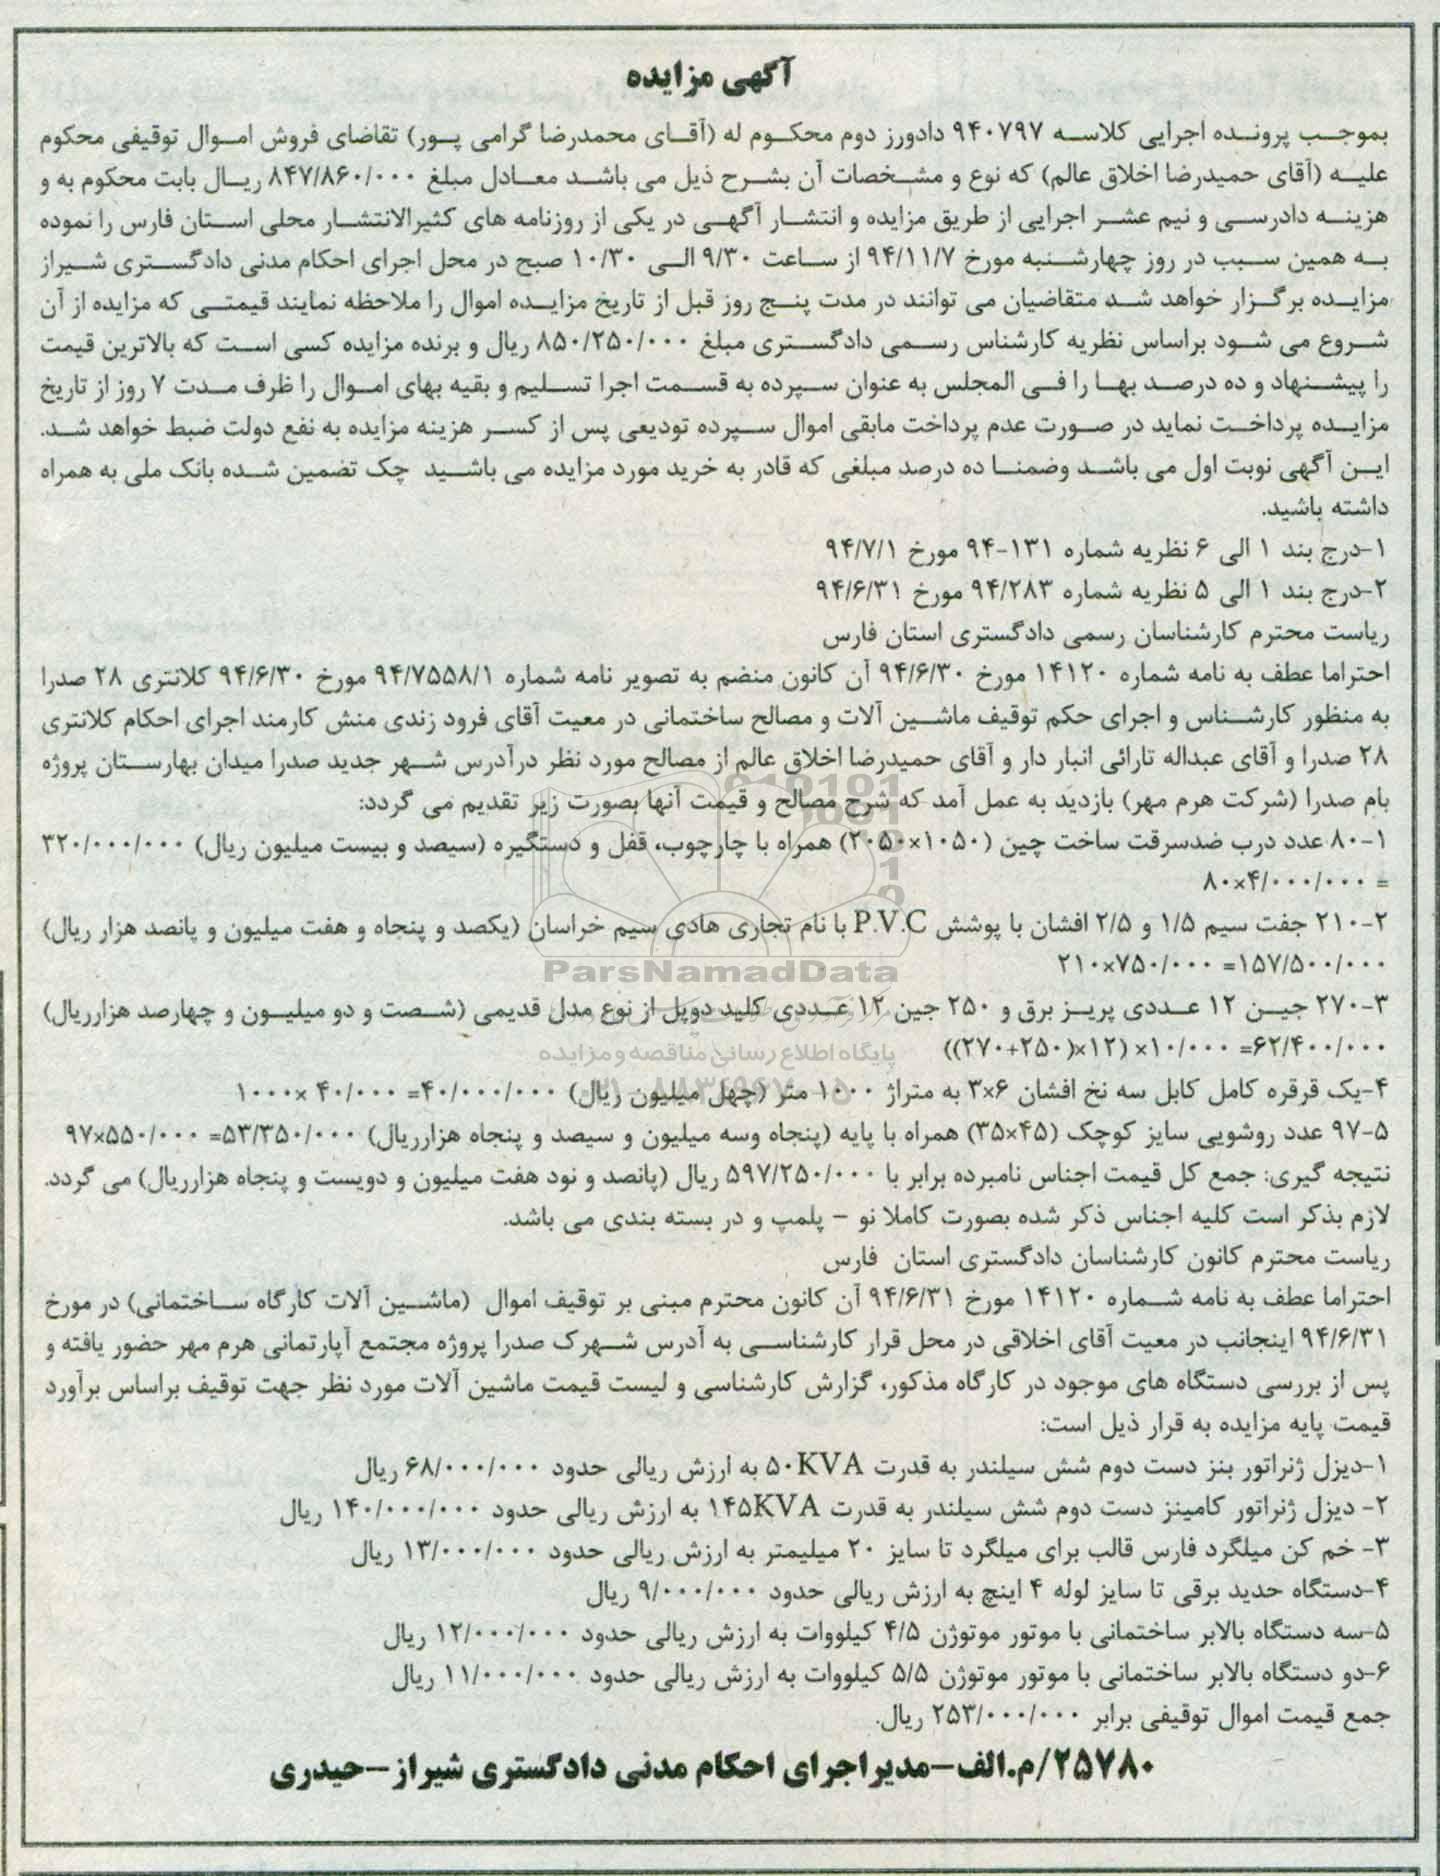 آگهی مزایده
بموجب پرونده اجرایی کلاسه ۹۴۰۷۹۷ دادورز دوم محکوم له (آقای محمدرضا گرامی پور) تقاضای فروش اموال توقیفی محکوم
علیه (آقای حمیدرضا اخلاق عالم) که نوع و مشخصات آن بشرح ذیل می باشد معادل مبلغ ۸۴۷/۸۶۰/۰۰۰ ریال بابت محکوم به و
هزینه دادرسی و نیم عشر اجرایی از طریق مزایده و انتشار آگهی در یکی از روزنامه های کثیرالانتشار محلی استان فارس را نموده
به همین سبب در روز چهارشنبه مورخ ۹۴/۱۱/۷ از ساعت ۹/۳۰ الی ۱۰/۳۰ صبح در محل اجرای احکام مدنی دادگستری شیراز
مزایده برگزار خواهد شد متقاضیان می توانند در مدت پنج روز قبل از تاریخ مزایده اموال را ملاحظه نمایند قیمتی که مزایده از آن
شروع می شود براساس نظریه کارشناس رسمی دادگستری مبلغ ۸۵۰/۲۵۰/۰۰۰ ریال و برنده مزایده کسی است که بالاترین قیمت
را پیشنهاد و ده درصد بها را فی المجلس به عنوان سپرده به قسمت اجرا تسلیم و بقیه بهای اموال را ظرف مدت ۷ روز از تاریخ
مزایده پرداخت نماید در صورت عدم پرداخت مابقی اموال سپرده تودیعی پس از کسر هزینه مزایده به نفع دولت ضبط خواهد شد.
این آگهی نوبت اول می باشد وضمنا ده درصد مبلغی که قادر به خرید مورد مزایده می باشید چک تضمین شده بانک ملی به همراه
داشته باشید.
۱-درج بند ۱ الی ۶ نظریه شماره ۱۳۱-۹۴ مورخ ۹۴/۷/۱
۲-درج بند ۱ الی ۵ نظریه شماره ۹۴/۲۸۳ مورخ ۹۴/۶/۳۱
ریاست محترم کارشناسان رسمی دادگستری استان فارس
احتراما عطف به نامه شماره ۱۴۱۲۰ مورخ ۹۴/۶/۳۰ آن کانون منضم به تصویر نامه شماره ۹۴/۷۵۵۸/۱ مورخ ۹۴/۶/۳۰ کلانتری ۲۸ صدرا
به منظور کارشناس و اجرای حکم توقیف ماشین آلات و مصالح ساختمانی در معیت آقای فرود زندی منش کارمند اجرای احکام کلانتری
۲۸ صدرا و آقای عبداله تارائی انبار دار و آقای حمیدرضا اخلاق عالم از مصالح مورد نظر درآدرس شهر جدید صدرا میدان بهارستان پروژه
بام صدرا (شرکت هرم مهر) بازدید به عمل آمد که شرح مصالح و قیمت آنها بصورت زیر تقدیم می گردد:
۱-۸۰ عدد درب ضدسرقت ساخت چین (۱۰۵۰×۲۰۵۰) همراه با چارچوب، قفل و دستگیره (سیصد و بیست میلیون ریال) ۳۲۰/۰۰۰/۰۰۰
= ۴/۰۰۰/۰۰۰×۸۰
۲-۲۱۰ جفت سیم ۱/۵ و ۲/۵ افشان با پوشش P.V.C با نام تجاری هادی سیم خراسان (یکصد و پنجاه و هفت میلیون و پانصد هزار ریال)
۱۵۷/۵۰۰/۰۰۰= ۷۵۰/۰۰۰×۲۱۰
ParsNamadData
۳-۲۷۰ جین ۱۲ عددی پریز برق و ۲۵۰ جین ۱۲ عددی کلید دوپل از نوع مدل قدیمی (شصت و دو میلیون و چهارصد هزارریال)
۶۲/۴۰۰/۰۰۰= ۱۰/۰۰۰× (۱۲×(۲۵۰+۲۷۰))
پایگاه اطلاع رسانی مناقصه و مزایده
۴-یک قرقره کامل کابل سه نخ افشان ۶×۳ به متراژ ۱۰۰۰ متر (چهل میلیون ریال) ۴۰/۰۰۰/۰۰۰= ۴۰/۰۰۰ ×۱۰۰۰
۵-۹۷ عدد روشویی سایز کوچک (۴۵×۳۵) همراه با پایه (پنجاه وسه میلیون و سیصد و پنجاه هزارریال) ۵۳/۳۵۰/۰۰۰= ۵۵۰/۰۰۰×۹۷
نتیجه گیری: جمع کل قیمت اجناس نامبرده برابر با ۵۹۷/۲۵۰/۰۰۰ ریال (پانصد و نود هفت میلیون و دویست و پنجاه هزارریال) می گردد.
لازم بذکر است کلیه اجناس ذکر شده بصورت کاملا نو – پلمپ و در بسته بندی می باشد.
ریاست محترم کانون کارشناسان دادگستری استان فارس
احتراما عطف به نامه شماره ۱۴۱۲۰ مورخ ۹۴/۶/۳۱ آن کانون محترم مبنی بر توقیف اموال (ماشین آلات کارگاه ساختمانی) در مورخ
۹۴/۶/۳۱ اینجانب در معیت آقای اخلاقی در محل قرار کارشناسی به آدرس شهرک صدرا پروژه مجتمع آپارتمانی هرم مهر حضور یافته و
پس از بررسی دستگاه های موجود در کارگاه مذکور، گزارش کارشناسی و لیست قیمت ماشین آلات مورد نظر جهت توقیف براساس برآورد
قیمت پایه مزایده به قرار ذیل است:
۱-دیزل ژنراتور بنز دست دوم شش سیلندر به قدرت ۵۰KVA به ارزش ریالی حدود ۶۸/۰۰۰/۰۰۰ ریال
۲- دیزل ژنراتور کامینز دست دوم شش سیلندر به قدرت ۱۴۵KVA به ارزش ریالی حدود ۱۴۰/۰۰۰/۰۰۰ ریال
۳- خم کن میلگرد فارس قالب برای میلگرد تا سایز ۲۰ میلیمتر به ارزش ریالی حدود ۱۳/۰۰۰/۰۰۰ ریال
۴-دستگاه حدید برقی تا سایز لوله ۴ اینچ به ارزش ریالی حدود ۹/۰۰۰/۰۰۰ ریال
۵-سه دستگاه بالابر ساختمانی با موتور موتوژن ۴/۵ کیلووات به ارزش ریالی حدود ۱۲/۰۰۰/۰۰۰ ریال
۶-دو دستگاه بالابر ساختمانی با موتور موتوژن ۵/۵ کیلووات به ارزش ریالی حدود ۱۱/۰۰۰/۰۰۰ ریال
جمع قیمت اموال توقیفی برابر ۲۵۳/۰۰۰/۰۰۰ ریال.
۲۵۷۸۰/م.الف-مدیراجرای احکام مدنی دادگستری شیراز-حیدری